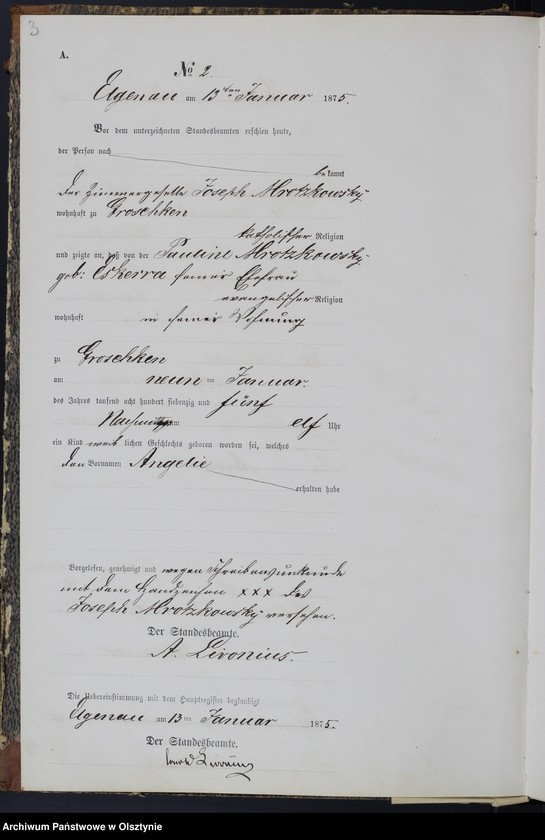 3
A.
No 2.
Elgenau am 13ten Januar 1875.
Vor dem unterzeichneten Standesbeamten erschien heute,
der Person nach
bekannt
der Zimmergeselle Joseph Mrotzkowsky
wohnhaft zu Groschken
katholischer Religion
und zeigte an, daß von der Pauline Mrotzkowsky
geb: Eskerra seiner Ehefrau
evangelischer Religion
wohnhaft in seiner Wohnung
zu Groschken
am neun ten Januar
des Jahres tausend acht hundert siebenzig und fünf
Nachmittags um elf Uhr
ein Kind weib lichen Geschlechts geboren worden sei, welches
den Vornamen Angelie
erhalten habe
Vorgelesen, genehmigt und wegen Schreibensunkunde
mit dem Handzeichen xxx des
Joseph Mrotzkowsky versehen.
Der Standesbeamte.
A. Livonius.
Die Uebereinstimmung mit dem Hauptregister beglaubigt
Elgenau am 13 ten Januar 1875.
Der Standesbeamte.
Livonius
Archiwum Państwowe w Olsztynie